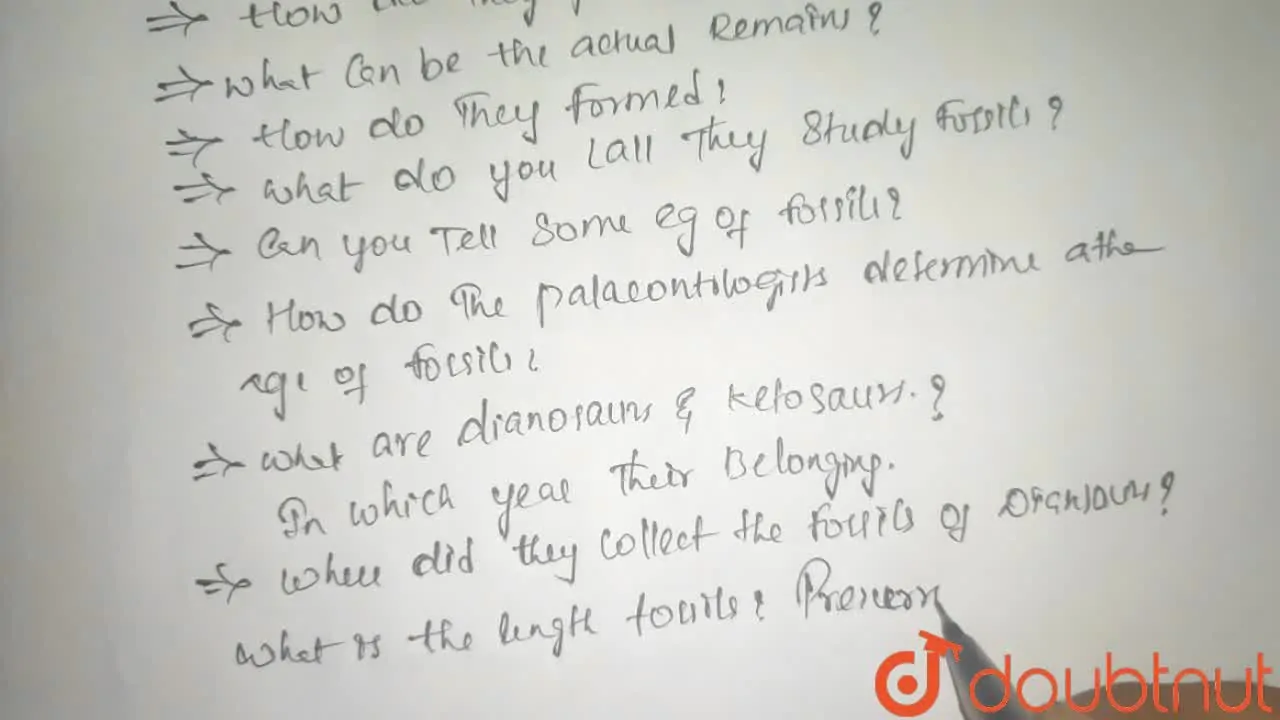 ⇒ How
⇒ What Can be the actual Remains?
⇒ How do They formed?
⇒ What do you Call They Study fossils?
⇒ Can you Tell Some eg of fossils?
⇒ How do The palaeontologists determine a the
age of fossils?
⇒ What are dianosaurs & Ketosaurs.?
In which year Their Belonging.
⇒ Where did they Collect the fossils of
What is the length fossils?
doubtnut